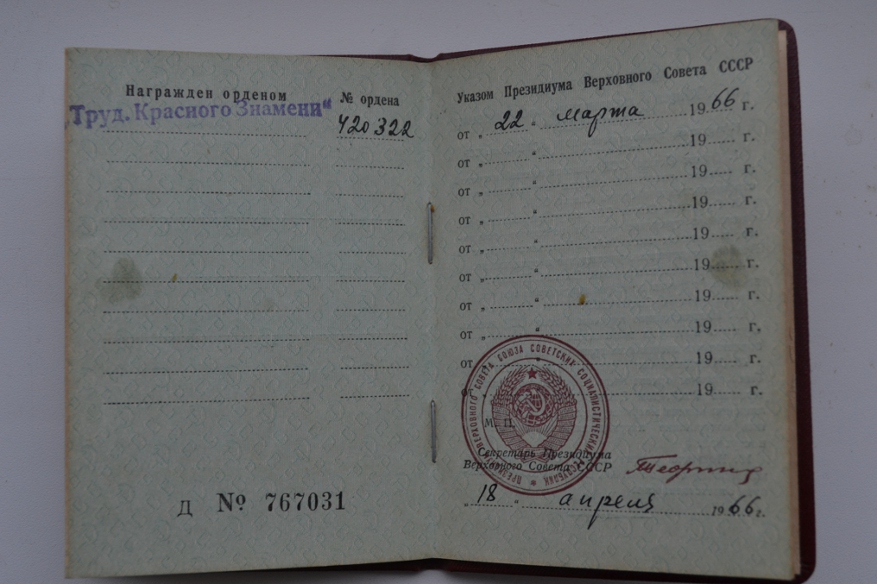 Награжден орденом
№ ордена
„Труд. Красного Знамени“
420322
Д № 767031
Указом Президиума Верховного Совета СССР
от „ 22 “ марта 1966 г.
от „ “ 19 г.
от „ “ 19 г.
от „ “ 19 г.
от „ “ 19 г.
от „ “ 19 г.
от „ “ 19 г.
от „ “ 19 г.
от „ “ 19 г.
19 г.
ПРЕЗИДИУМ ВЕРХОВНОГО СОВЕТА СОЮЗА СОВЕТСКИХ СОЦИАЛИСТИЧЕСКИХ РЕСПУБЛИК
М. П.
Секретарь Президиума
Верховного Совета СССР
„ 18 “ апреля 1966 г.